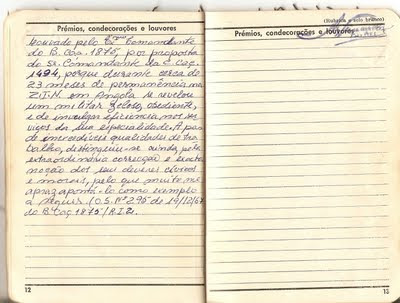 Prémios, condecorações e louvores
Louvado pelo Exmo Comandante
do B. Caç. 1875, por proposta
do Sr. Comandante da C. Caç.
1494, porque durante cerca de
23 meses de permanência na
Z.I.N. em Angola se revelou
um militar zeloso, obediente,
e de invulgar eficiência nos ser
viços da sua especialidade. A par
de incrediveis qualidades de tra
balho, distinguiu-se ainda pela
extraordinária correcção e exacta
noção dos seus deveres cívicos
e morais, pelo que muito me
apraz apontá-lo como exemplo
a seguir. (O.S. Nº 295 de 19/12/67
do B. Caç. 1875/R.I.2.
12
(Rubrica e selo branco)
Prémios, condecorações e louvores
13